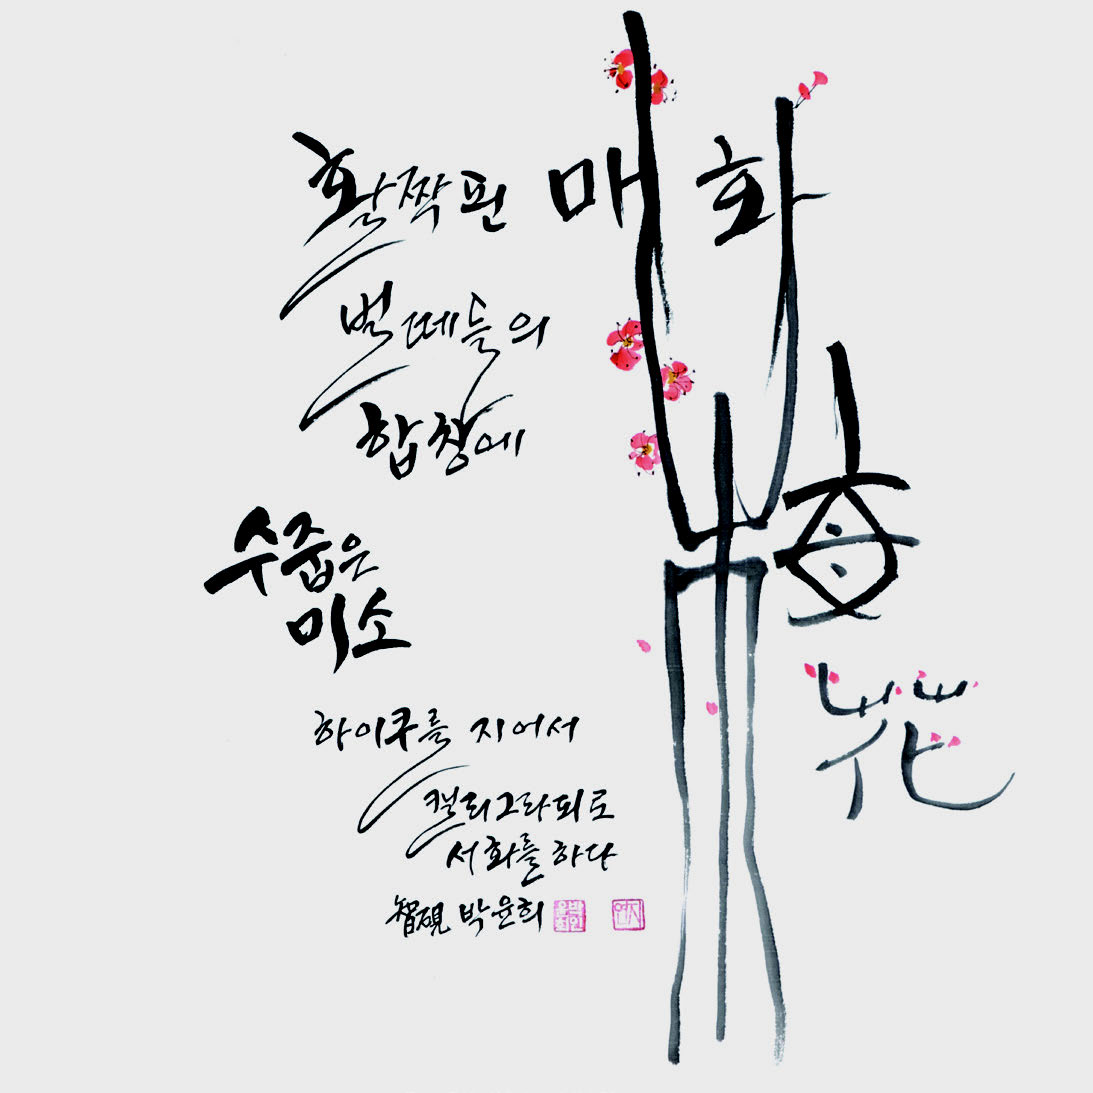 활짝 핀 매화
벌떼들의
합창에
수줍은
미소
梅花
하이쿠를 지어서
캘리그라피로
서화를 하다
智硯 박윤희